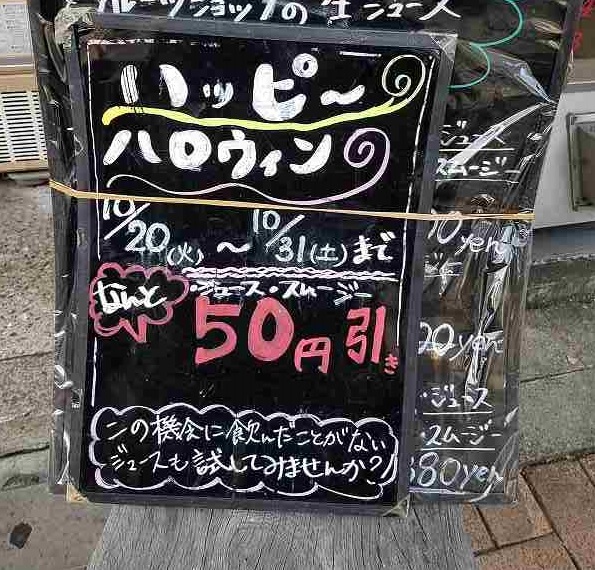 フルーツショップの生ジュース
ハッピ〜
ハロウィン
10/20(火)〜10/31(土)まで
なんと
・ジュース・スムージー
50円引き
この機会に飲んだことがない
ジュースも試してみませんか?
ジュース
スムージー
yen
20yen
・ジュース
・スムージー
380yen